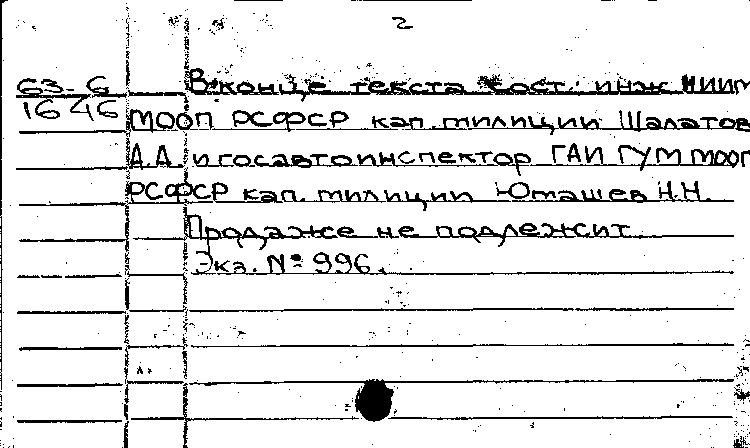 2
63-6
1646
В конце текста сост.: инж НИИМ
МООП РСФСР кап. милиции Шалатов
А.А. и госавтоинспектор ГАИ ГУМ МООП
РСФСР кап. милиции Юташев Н.Н.
Продаже не подлежит
Экз. № 996.